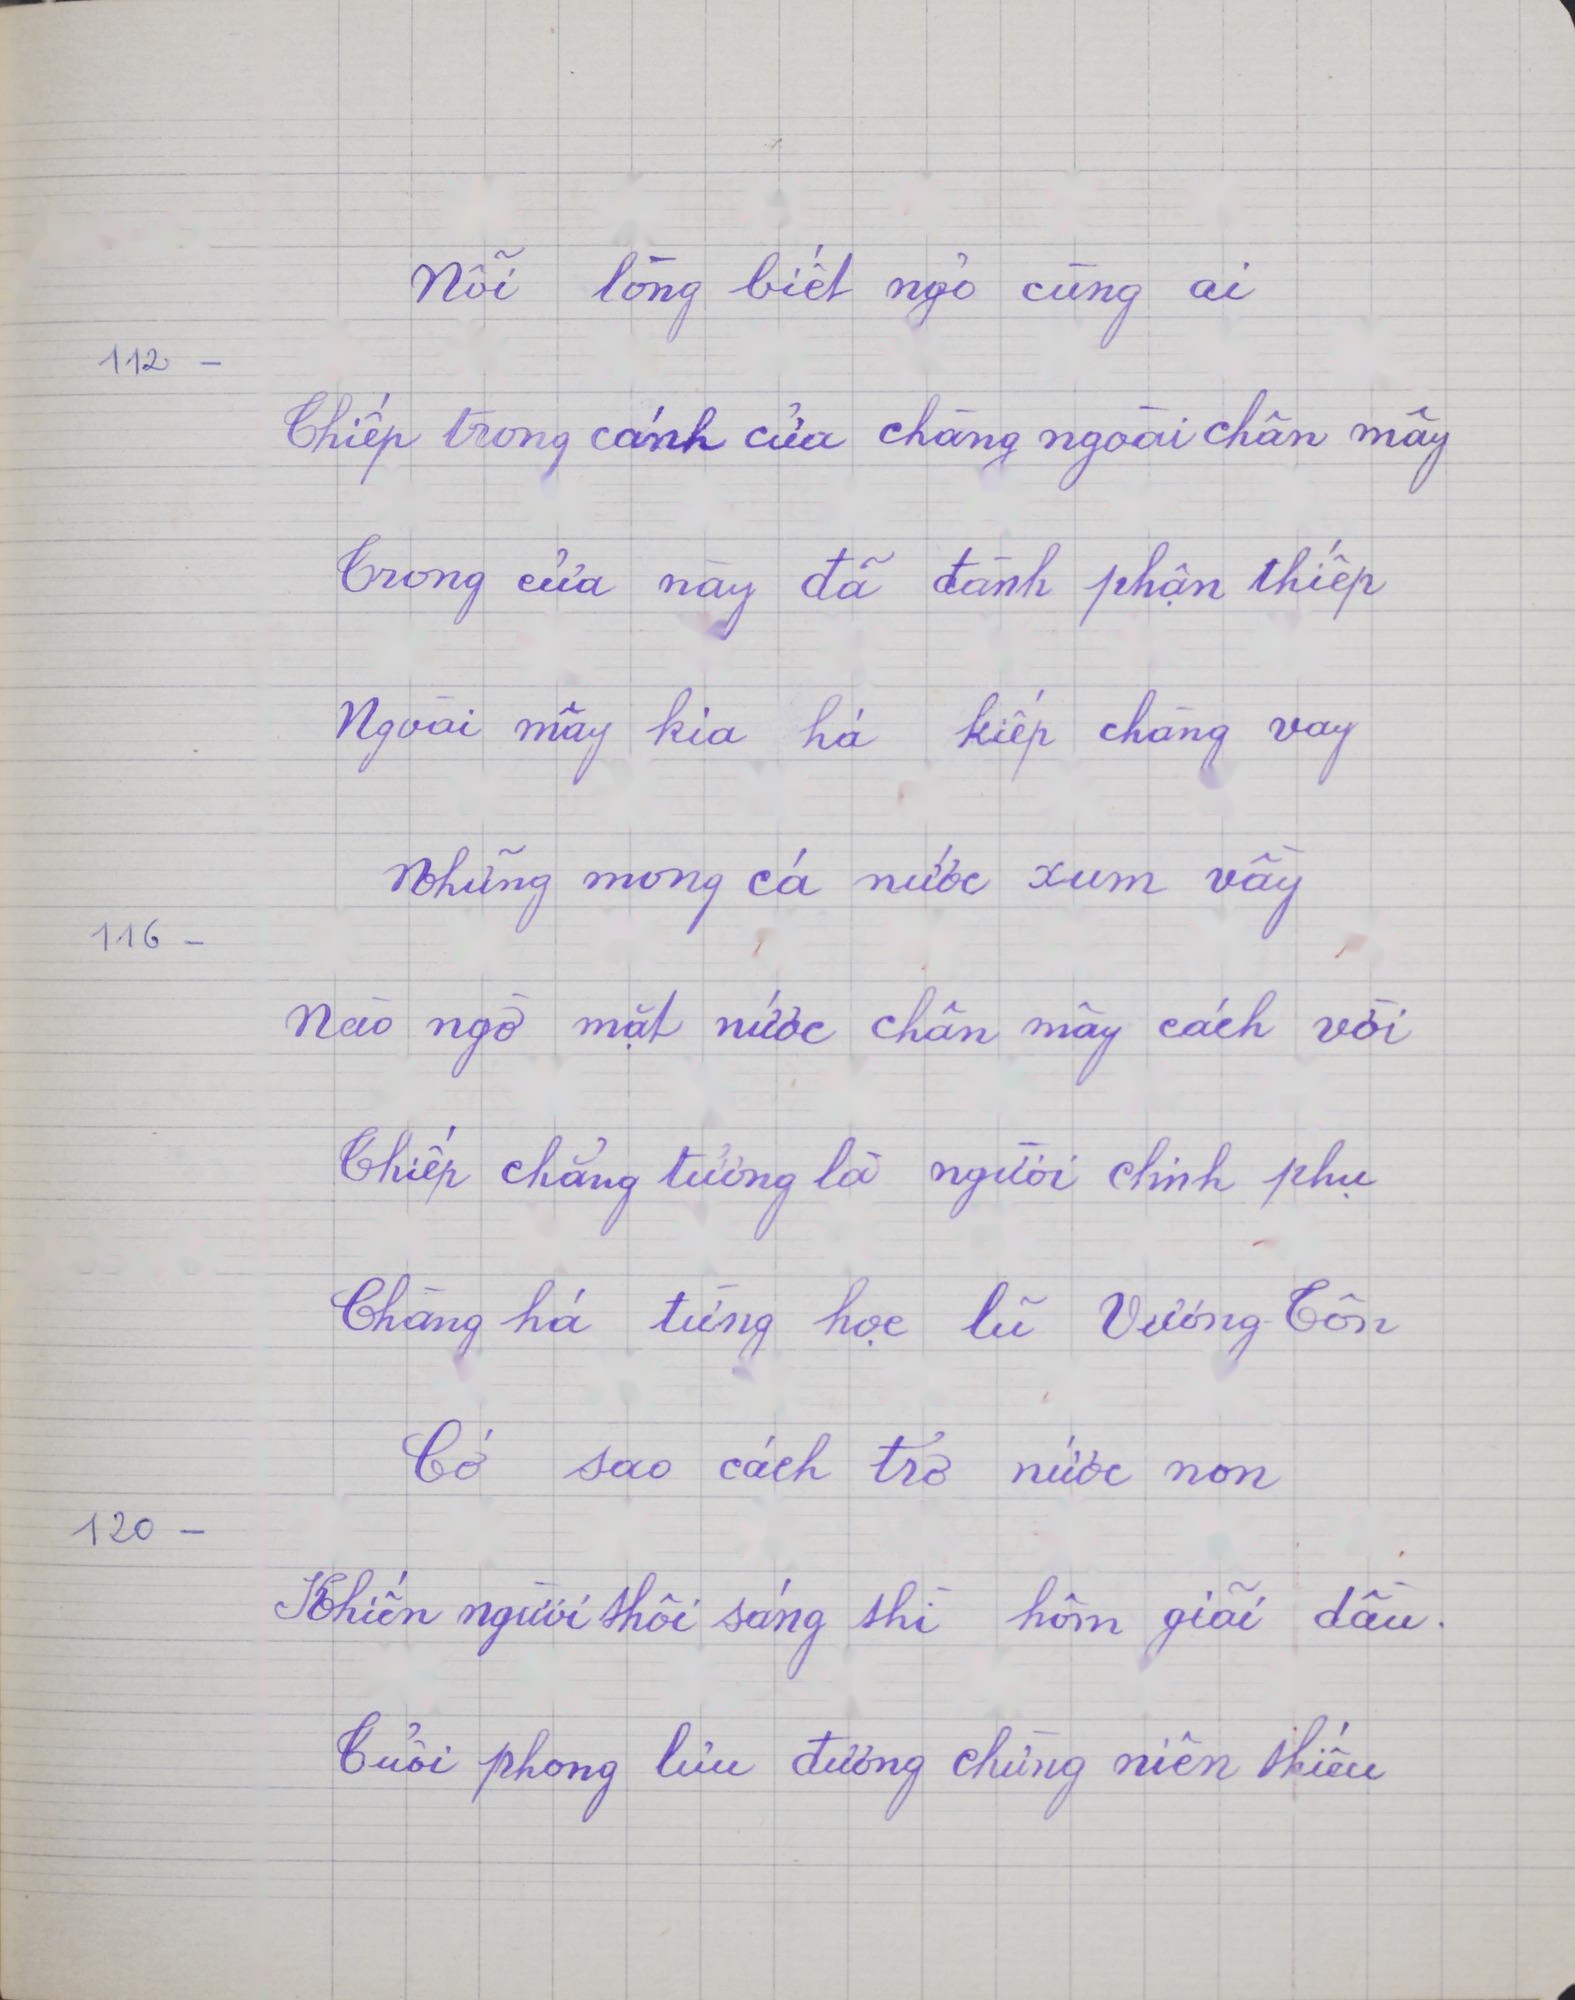 Nỗi lòng biết ngỏ cùng ai
112 –
Thiếp trong cánh cửa chàng ngoài chân mây
Trong cửa này đã đành phận thiếp
Ngoài mây kia há kiếp chàng vay
Những mong cá nước xum vầy
116 –
Nào ngờ mặt nước chân mây cách vời
Thiếp chẳng tưởng là người chinh phụ
Chàng há từng học lũ Vương-Tôn
Cớ sao cách trở nước non
120 –
Khiến người thôi sáng thì hôm giãi dầu.
Tuổi phong lưu đương chừng niên thiếu